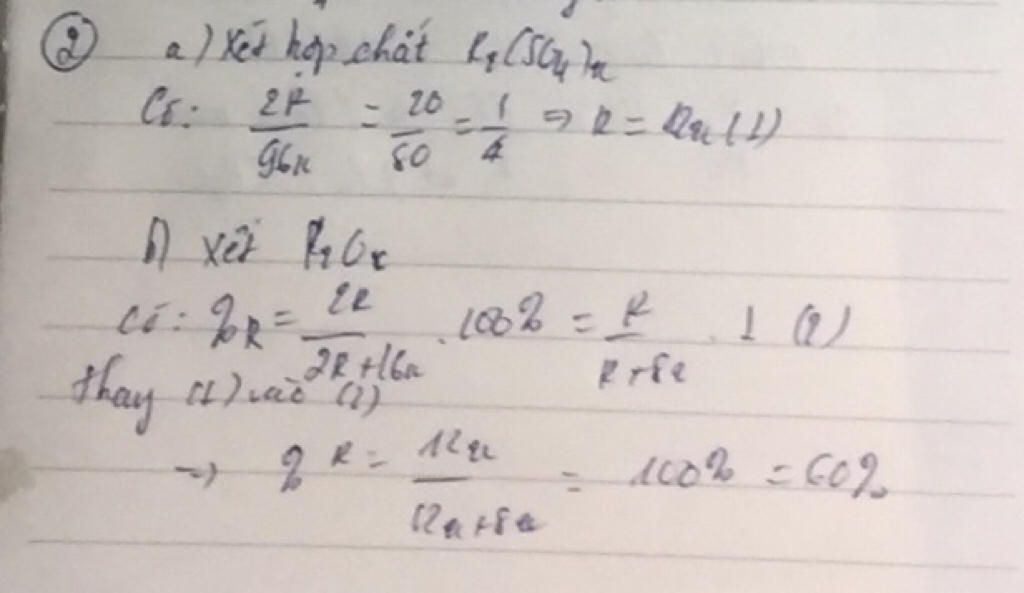 ② a) Xét hợp chất R₂(SO₄)ₓ
Có: 2R/96x = 20/80 = 1/4 => R = 12x (1)
b) Xét R₂Oₓ
Có: %R = 2R/(2R+16x) . 100% = R/(R+8x) . 1 (2)
thay (1) vào (2)
→ %R = 12x/(12x+8x) = 100% = 60%